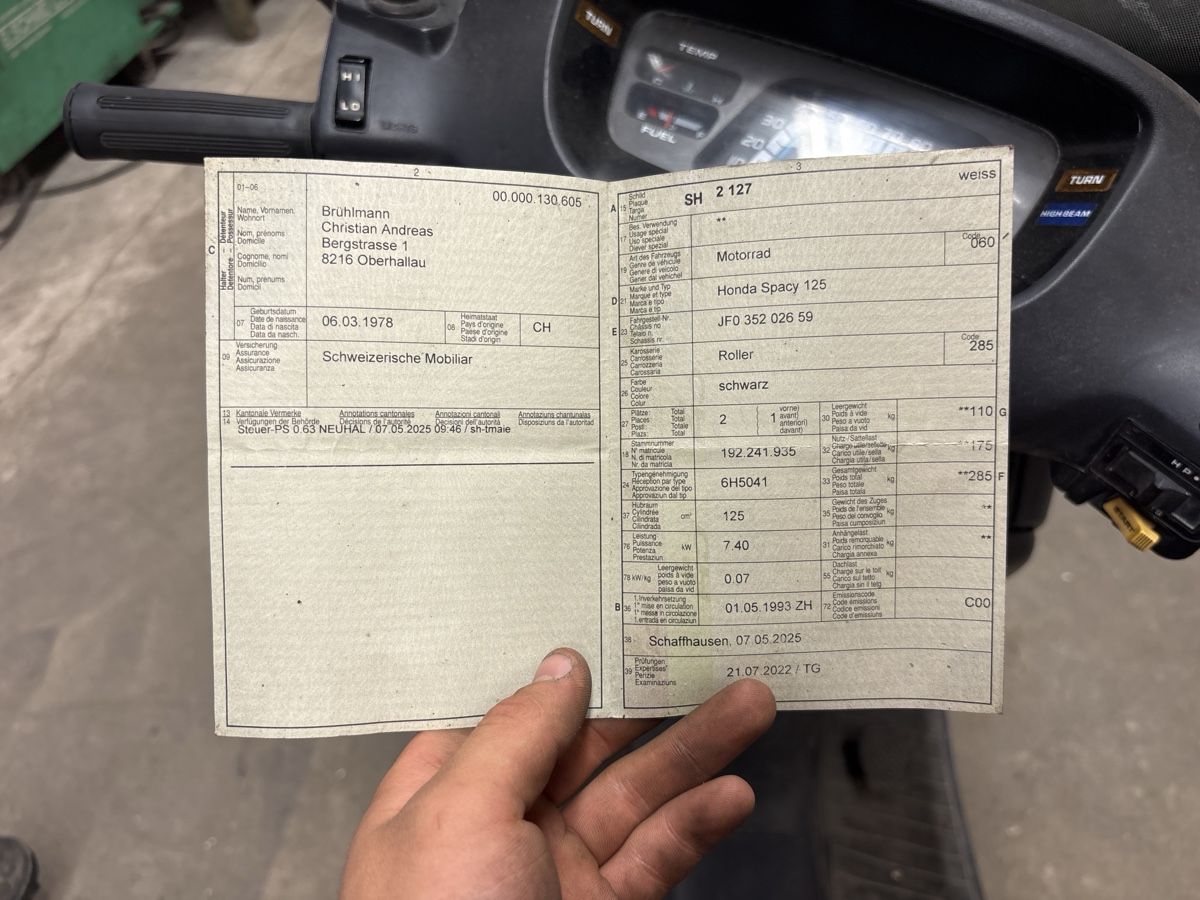 TURN
TEMP
C
H
HI
LO
E
F
FUEL
30
20
10
TURN
HIGH BEAM
START
2
01-06
00.000.130.605
C
Détenteur
Possessur
Halter
Detentore
Name, Vornamen
Wohnort
Nom, prénoms
Domicile
Cognome, nomi
Domicilio
Num, prenums
Domicil
Brühlmann
Christian Andreas
Bergstrasse 1
8216 Oberhallau
07
Geburtsdatum
Date de naissance
Data di nascita
Data da nasch.
06.03.1978
08
Heimatstaat
Pays d'origine
Paese d'origine
Stadi d'origin
CH
09
Versicherung
Assurance
Assicurazione
Assicuranza
Schweizerische Mobiliar
13 Kantonale Vermerke Annotations cantonales Annotazioni cantonali Annotaziuns chantunalas
14 Verfügungen der Behörde Décisions de l'autorité Decisioni dell'autorità Disposiziuns da l'autoritad
Steuer-PS 0.63 NEUHAL / 07.05.2025 09:46 / sh-tmaie
3
weiss
A 15
Schild
Plaque
Targa
Numer
SH 2 127
17
Bes. Verwendung
Usage spécial
Uso speciale
Diever spezial
**
19
Art des Fahrzeugs
Genre de véhicule
Genere di veicolo
Gener dal vehichel
Motorrad
Code
060
D 21
Marke und Typ
Marque et type
Marca e tipo
Marca e tip
Honda Spacy 125
E 23
Fahrgestell-Nr.
Châssis no
Telaio n.
Schassis nr.
JF0 352 026 59
25
Karosserie
Carrosserie
Carrozzeria
Carossaria
Roller
Code
285
26
Farbe
Couleur
Colore
Colur
schwarz
27
Plätze: Total
Places: Total
Posti: Totale
Plazs: Total
2
1
vorne)
avant)
anteriori)
davant)
30
Leergewicht
Poids à vide
Peso a vuoto
Paisa da vid
kg
**110 G
18
Stammnummer
N° matricule
N. di matricola
Nr. da matricla
192.241.935
32
Nutz-/Sattellast
Charge utile/sellette
Carico utile/sella
Chargia utila/sella
kg
**175
24
Typengenehmigung
Réception par type
Approvazione del tipo
Approvaziun dal tip
6H5041
33
Gesamtgewicht
Poids total
Peso totale
Paisa totala
kg
**285 F
37
Hubraum
Cylindrée
Cilindrata
Cilindrada
cm³
125
35
Gewicht des Zuges
Poids de l'ensemble
Peso del convoglio
Paisa cumposiziun
kg
**
76
Leistung
Puissance
Potenza
Prestaziun
kW
7.40
31
Anhängelast
Poids remorquable
Carico rimorchiato
Chargia annexa
kg
**
78 kW/kg
Leergewicht
poids à vide
peso a vuoto
paisa da vid
0.07
55
Dachlast
Charge sur le toit
Carico sul tetto
Chargia sin il tetg
kg
B 36
1. Inverkehrsetzung
1re mise en circulation
1a messa in circolazione
1. entrada en circulaziun
01.05.1993 ZH
72
Emissionscode
Code émissions
Codice emissioni
Code d'emissiuns
C00
38
Schaffhausen, 07.05.2025
39
Prüfungen
Expertises
Perizie
Examinaziuns
21.07.2022 / TG